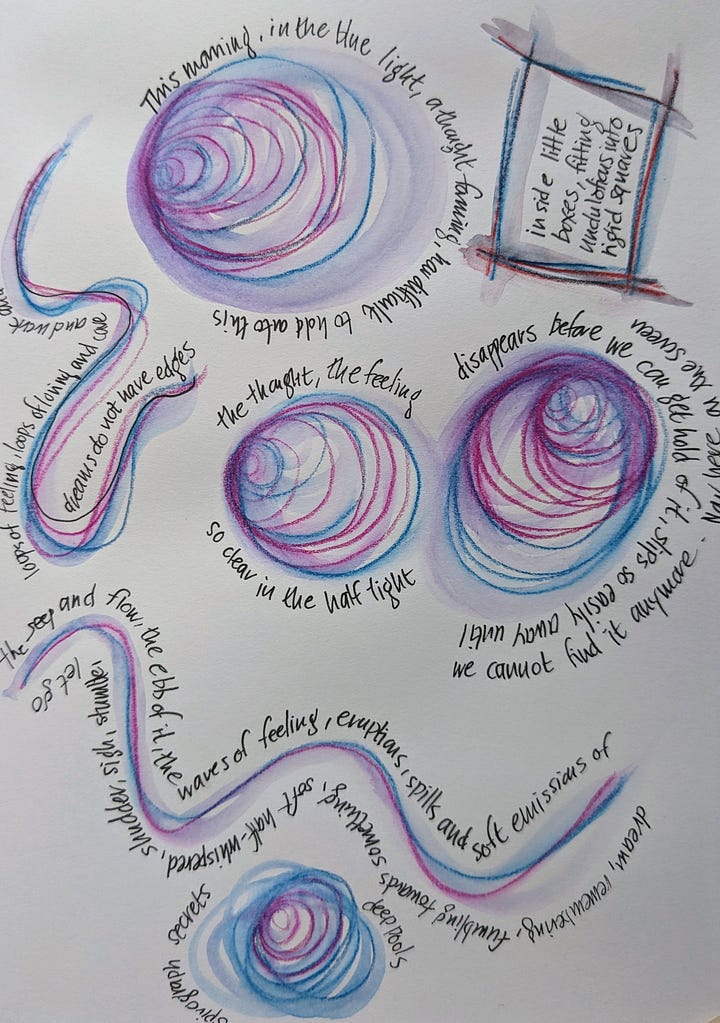 This morning, in the blue light, a thought forming, how difficult to hold onto this
inside little
boxes, fitting
undulations into
rigid squares
the thought, the feeling
so clear in the half light
disappears before we can get hold of it, slips so easily away until
we cannot find it anymore. Now here
in the sween
loops of feeling, loops of loving and care
and
dreams do not have edges
the seep and flow, the ebb of it, the waves of feeling, eruptions, spills and soft emissions of
dream, remembering, tumbling towards something, soft half-whispered, shudder, sigh,
let go
deep pools
spirograph secrets